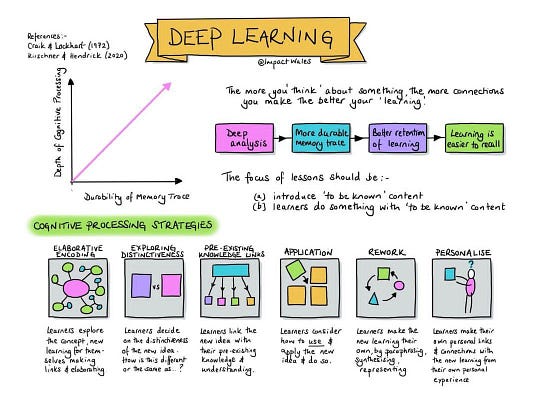 References:-
Craik & Lockhart (1972)
Kirschner & Hendrick (2020)
DEEP LEARNING
@ImpactWales
Depth of Cognitive Processing
Durability of Memory Trace
The more you 'think' about something, the more connections
you make the better your 'learning'.
Deep
analysis
More durable
memory trace
Better retention
of learning
Learning is
easier to recall
The focus of lessons should be:-
(a) introduce 'to be known' content
(b) learners do something with 'to be known' content
COGNITIVE PROCESSING STRATEGIES
ELABORATIVE
ENCODING
Learners explore
the concept, new
learning for them-
selves making
links & elaborating
EXPLORING
DISTINCTIVENESS
VS
Learners decide
on the distinctiveness
of the new idea.
How is this different
or the same as..?
PRE-EXISTING
KNOWLEDGE LINKS
Learners link the
new idea with
their pre-existing
knowledge &
understanding.
APPLICATION
Learners consider
how to use &
apply the new
idea & do so.
REWORK
Learners make the
new learning their
own, by paraphrasing,
synthesising,
representing
PERSONALISE
?
Learners make their
own personal links
& connections with
the new learning from
their own personal
experience